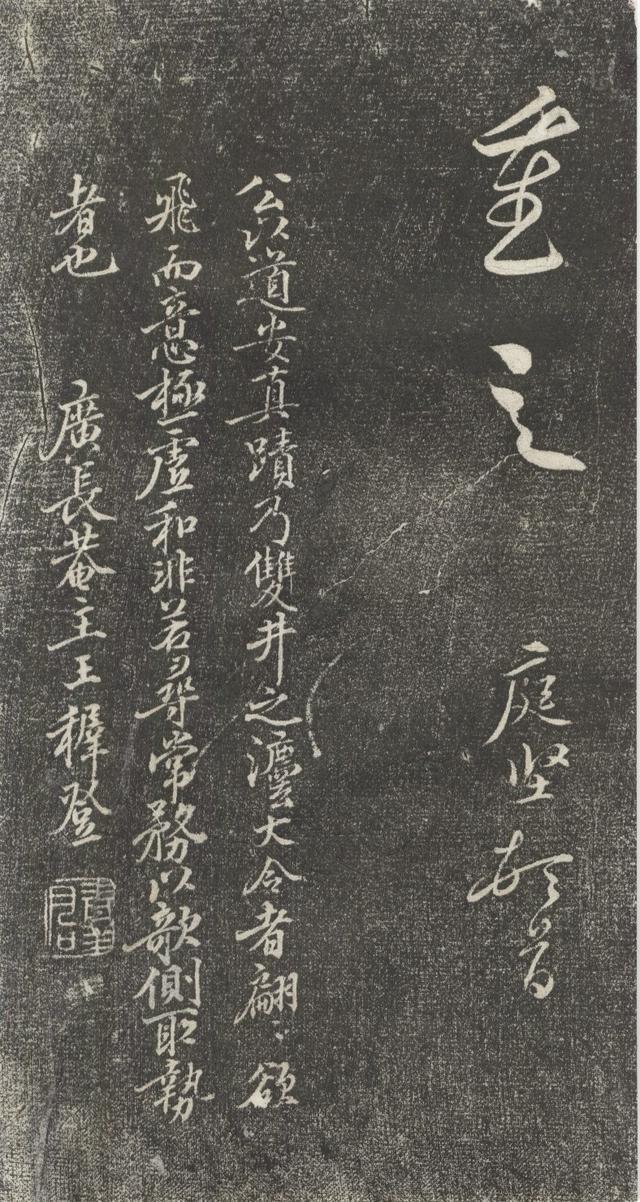 重之 庭坚頓首
公此道安真蹟乃雙井之灋大令者翩〻欲
飛而意極虛和非若尋常務以欹側取勢
者也 廣長菴主王穉登